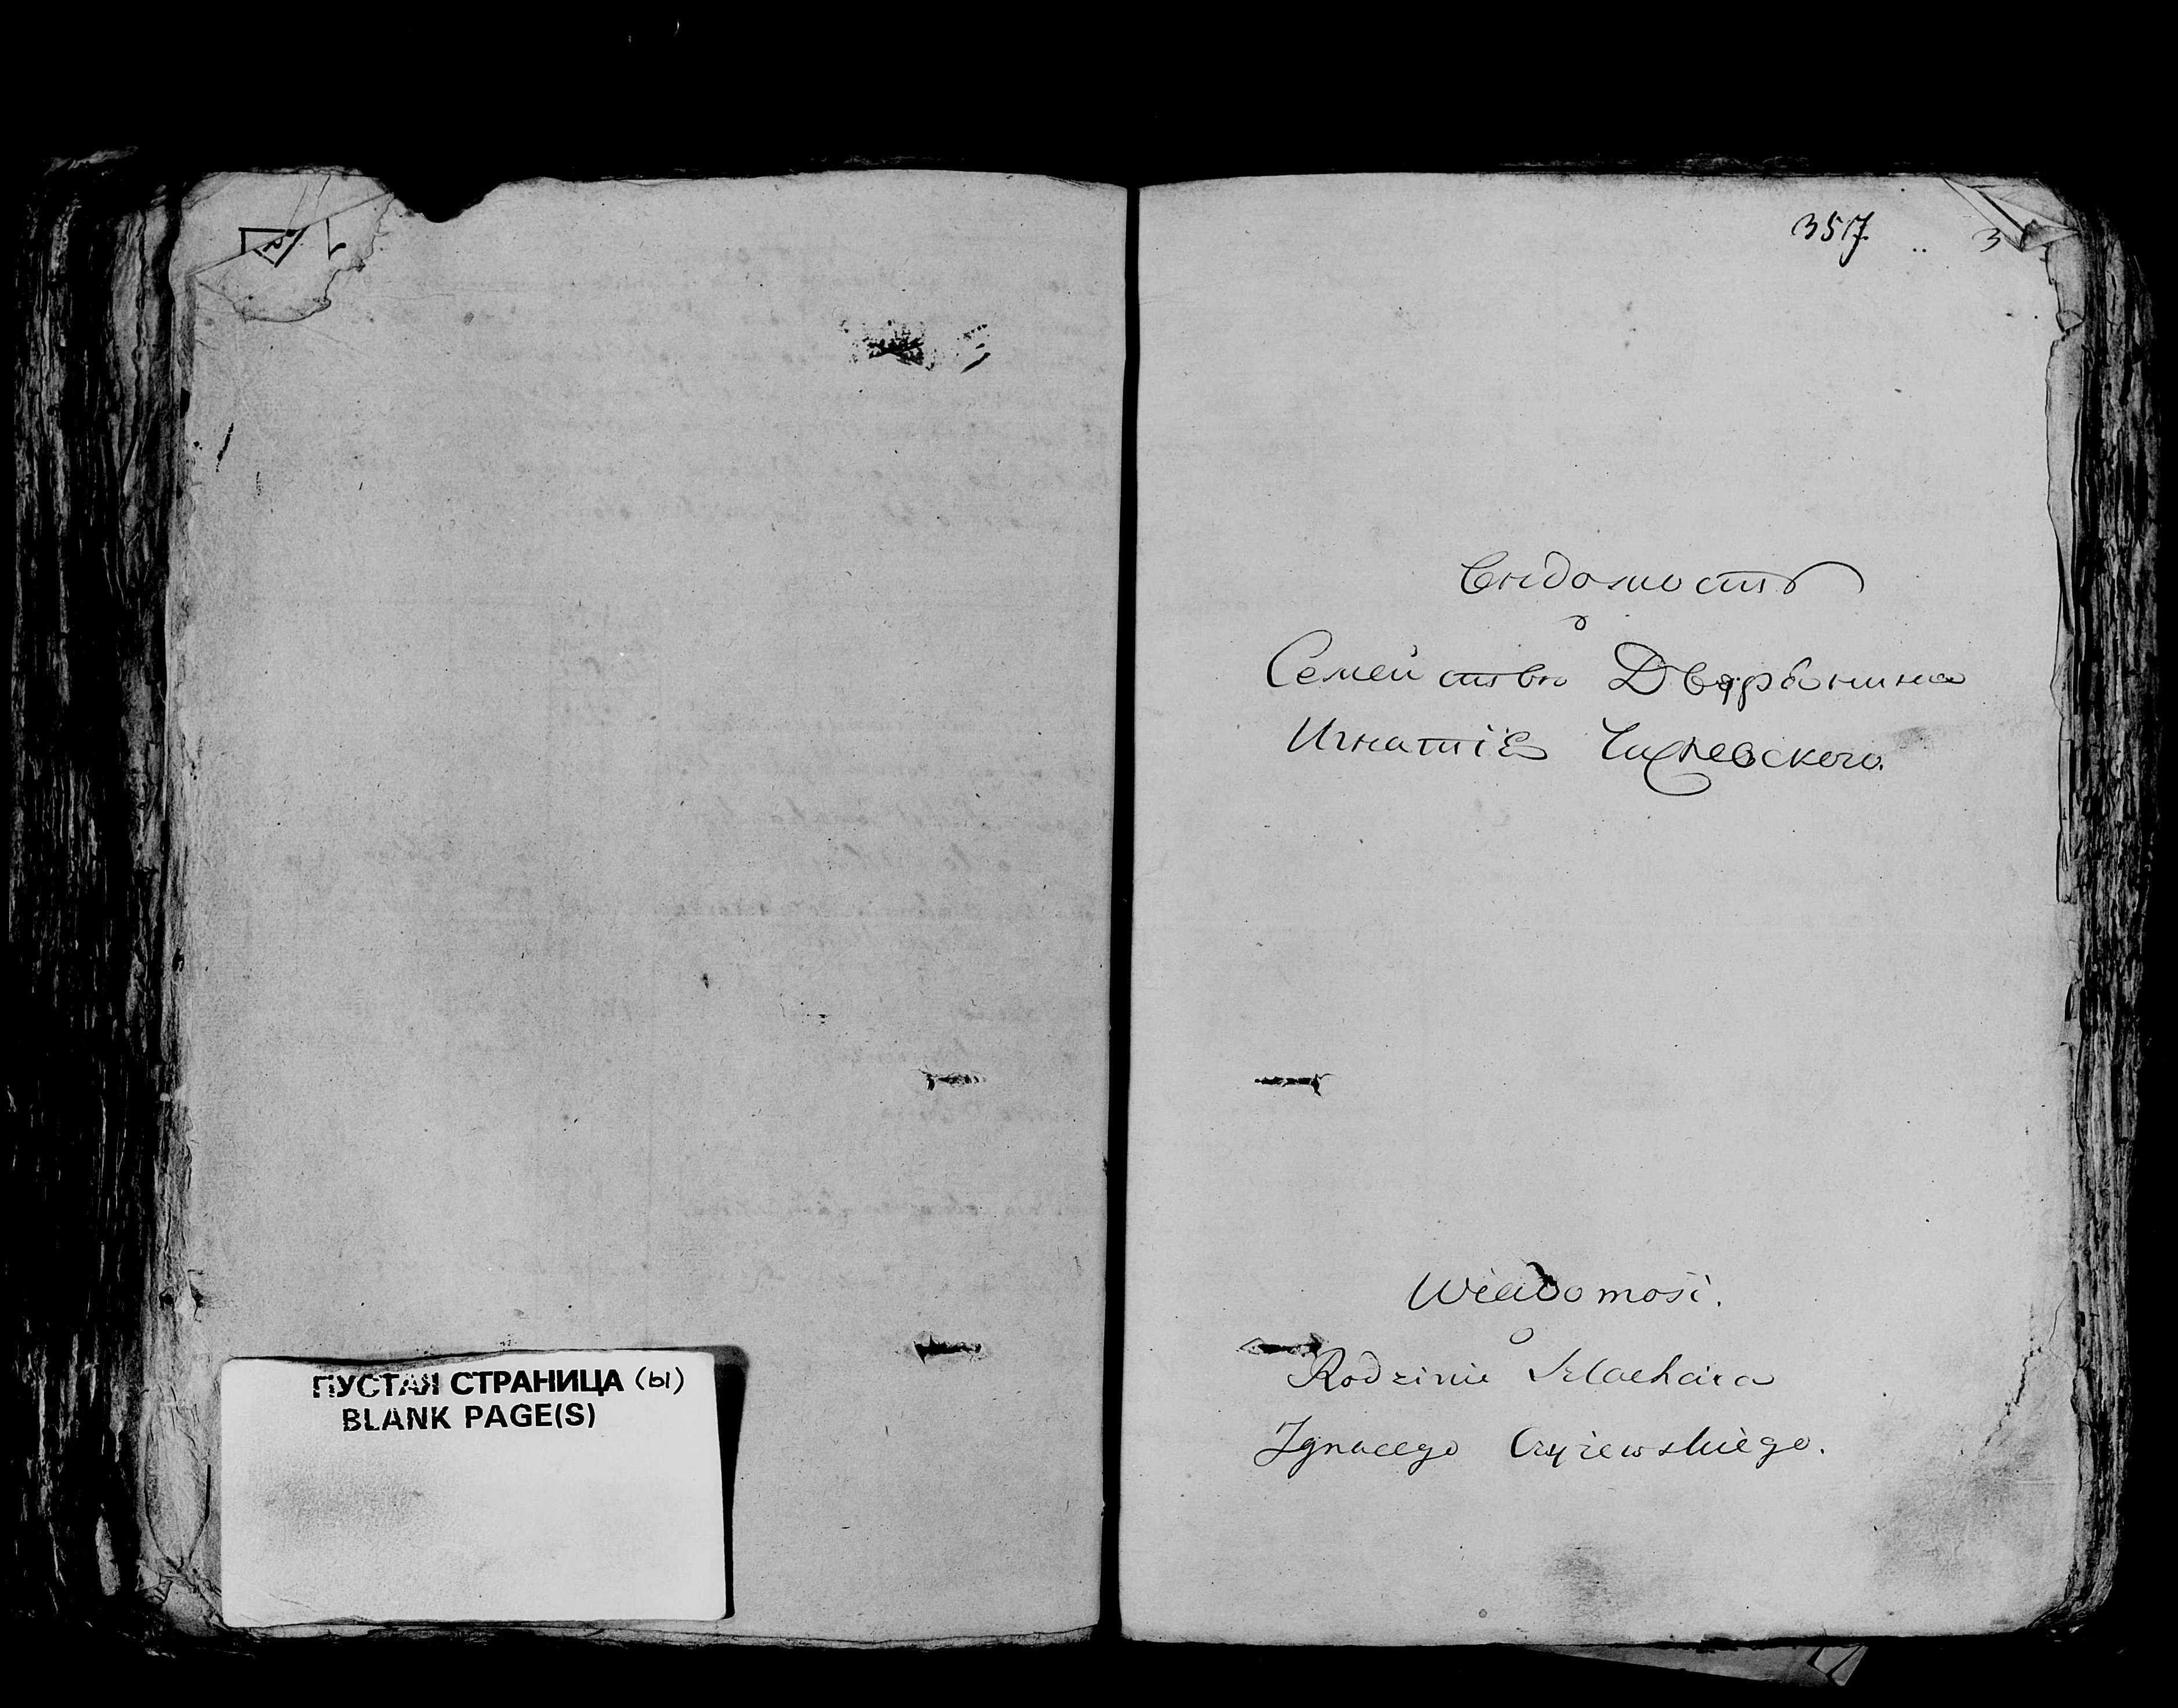 357.
3
Вѣдомость
о
Семействѣ Дворянина
Игнатія Чижевскаго.
Wiadomość.
o
Rodzinie Szlachcica
Ignacego Czyżewskiego.
ПУСТАЯ СТРАНИЦА (Ы)
BLANK PAGE(S)